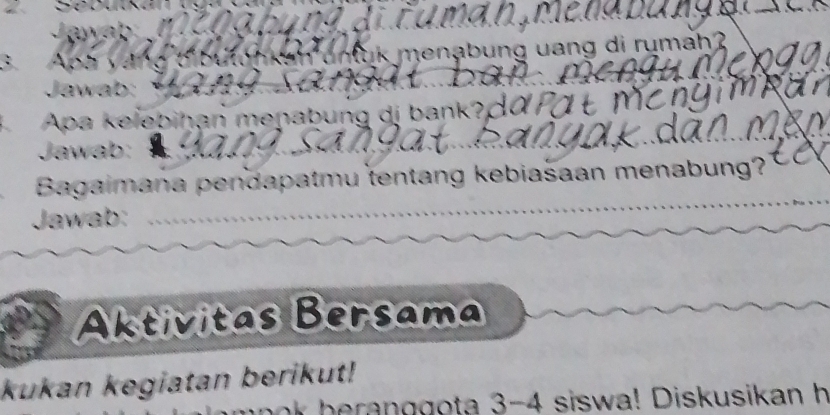 2. Sebutkan tiga cara
Jawab: menabung di rumah, menabung di sek
menabung di bank
3. Apa yang dibutuhkan untuk menabung uang di rumah?
Jawab: yang sangat ban mengu
Apa kelebihan menabung di bank? dapat menyimpan
Jawab: yang sangat banyak dan men
Bagaimana pendapatmu tentang kebiasaan menabung? ter
Jawab:
Aktivitas Bersama
kukan kegiatan berikut!
beranggota 3-4 siswa! Diskusikan h